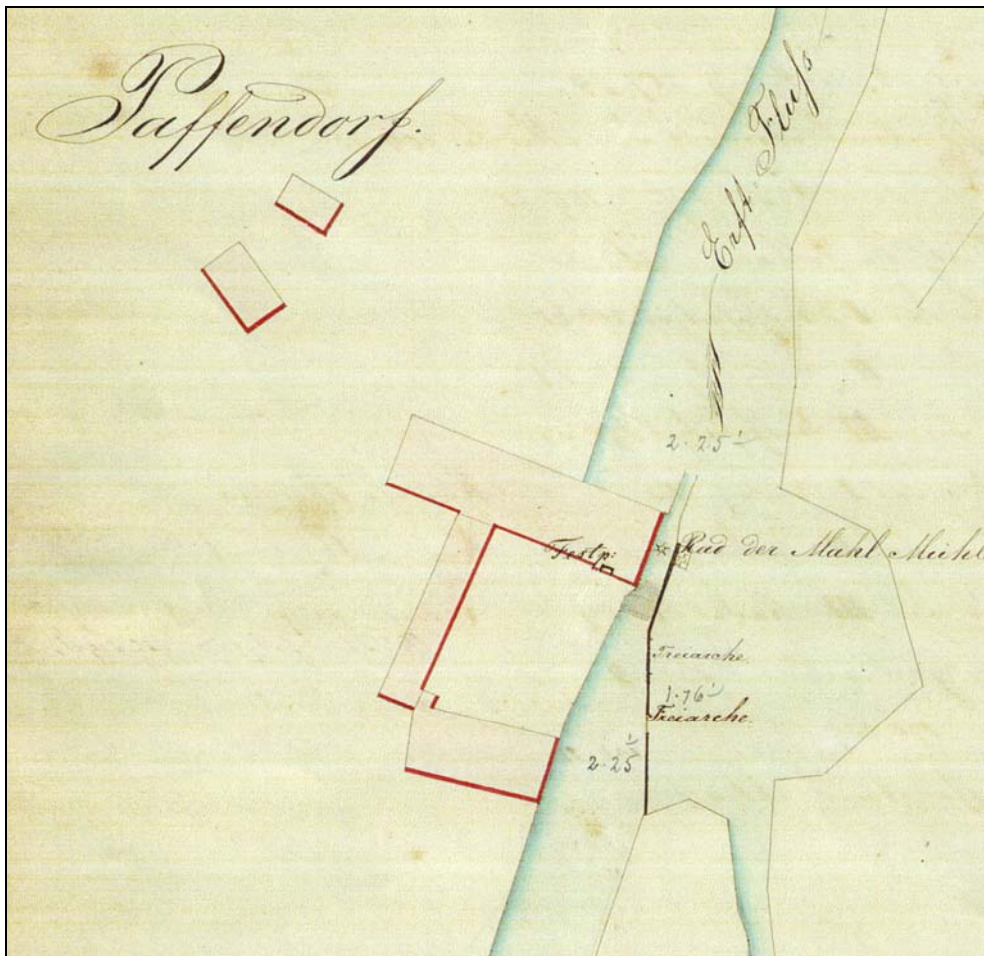 Paffendorf.
Erft. Fluſs.
2. 25'
Festp:
Rad der Mahl Mühl
Freiarche.
1. 76'
Freiarche.
2. 25'